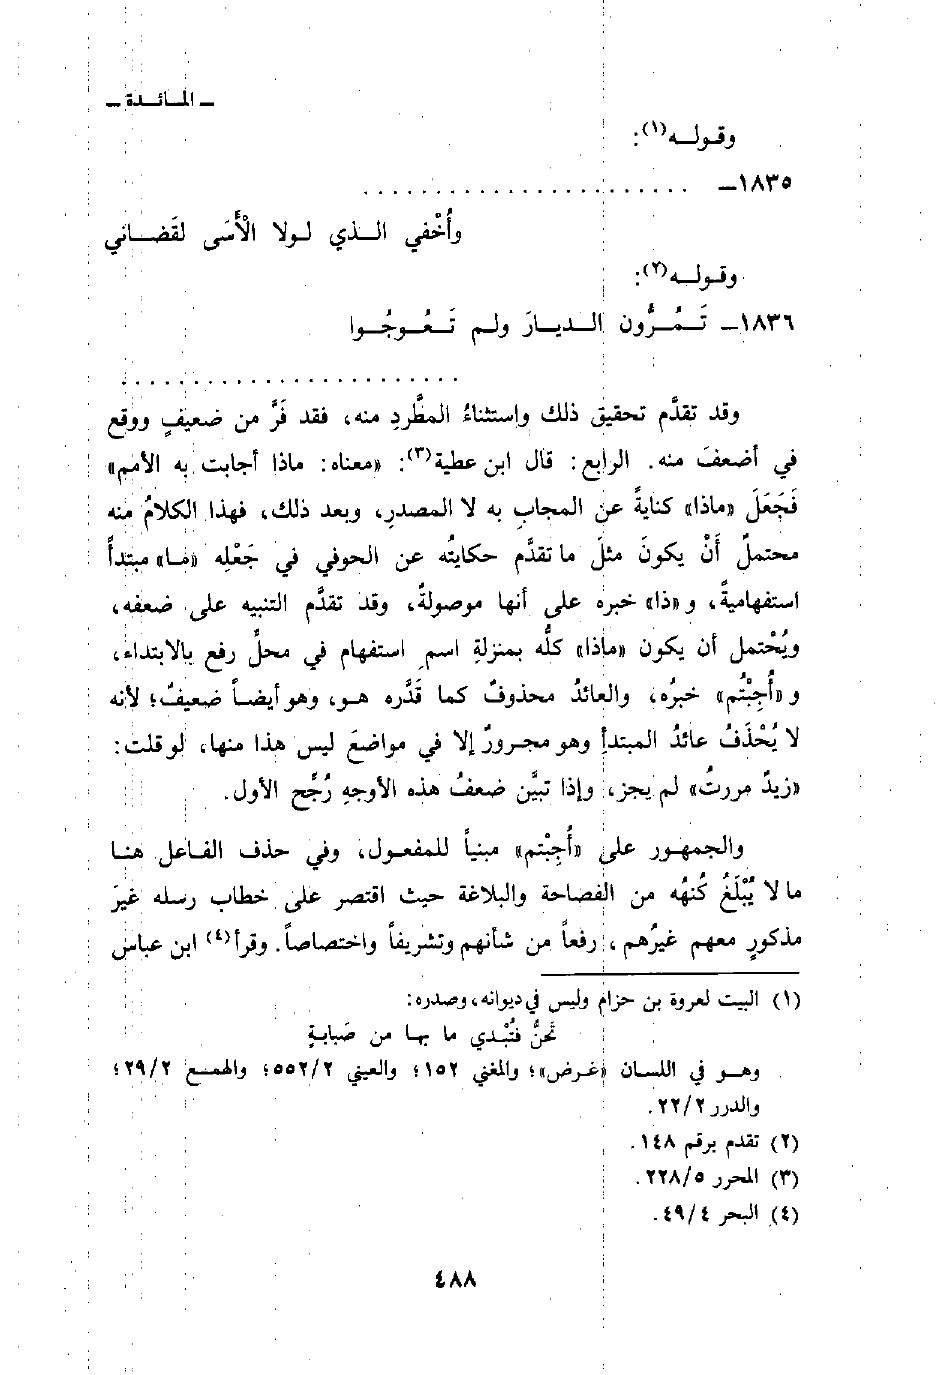 ـ المائدة ـ
وقوله(١):
١٨٣٥ـ . . . . . . . . . . . . . . . . . . . . . . .
وأُخْفي الذي لولا الْأَسَى لقَضاني
وقوله(٢):
١٨٣٦ـ تَمُرُّون الديارَ ولم تَعُوجُوا
. . . . . . . . . . . . . . . . . . . . . . . .
وقد تقدَّم تحقيق ذلك واستثناءُ المطَّردِ منه، فقد فَرَّ من ضعيفٍ ووقع
في أضعفَ منه. الرابع: قال ابن عطية(٣): «معناه: ماذا أجابت به الأمم»
فَجَعَلَ «ماذا» كنايةً عن المجابِ به لا المصدرِ، وبعد ذلك، فهذا الكلامُ منه
محتملٌ أَنْ يكونَ مثلَ ما تقدَّم حكايتُه عن الحوفي في جَعْلِه «ما» مبتدأً
استفهاميةً، و «ذا» خبره على أنها موصولةٌ، وقد تقدَّم التنبيه على ضعفه،
ويُحْتمل أن يكون «ماذا» كلُّه بمنزلةِ اسمِ استفهام في محلِّ رفع بالابتداء،
و «أُجِبْتُم» خبرُه، والعائدُ محذوفٌ كما قَدَّره هو، وهو أيضاً ضعيفٌ؛ لأنه
لا يُحْذَفُ عائدُ المبتدأِ وهو مجرورٌ إلا في مواضعَ ليس هذا منها، لو قلت:
«زيدٌ مررتُ» لم يجز، وإذا تبيَّن ضعفُ هذه الأوجهِ رُجِّح الأول.
والجمهور على «أُجِبْتم» مبنياً للمفعول، وفي حذف الفاعل هنا
ما لا يُبْلَغُ كُنهُه من الفصاحة والبلاغة حيث اقتصر على خطاب رسله غيرَ
مذكورٍ معهم غيرُهم، رفعاً من شأنهم وتشريفاً واختصاصاً. وقرأ(٤) ابن عباس
(١) البيت لعروة بن حزام وليس في ديوانه، وصدره:
تحنُّ فتُبْدي ما بها من صَبابةٍ
وهو في اللسان «غرض»؛ والمغني ١٥٢؛ والعيني ٥٥٢/٢؛ والهمع ٢٩/٢؛
والدرر ٢٢/٢.
(٢) تقدم برقم ١٤٨.
(٣) المحرر ٢٢٨/٥.
(٤) البحر ٤٩/٤.
٤٨٨